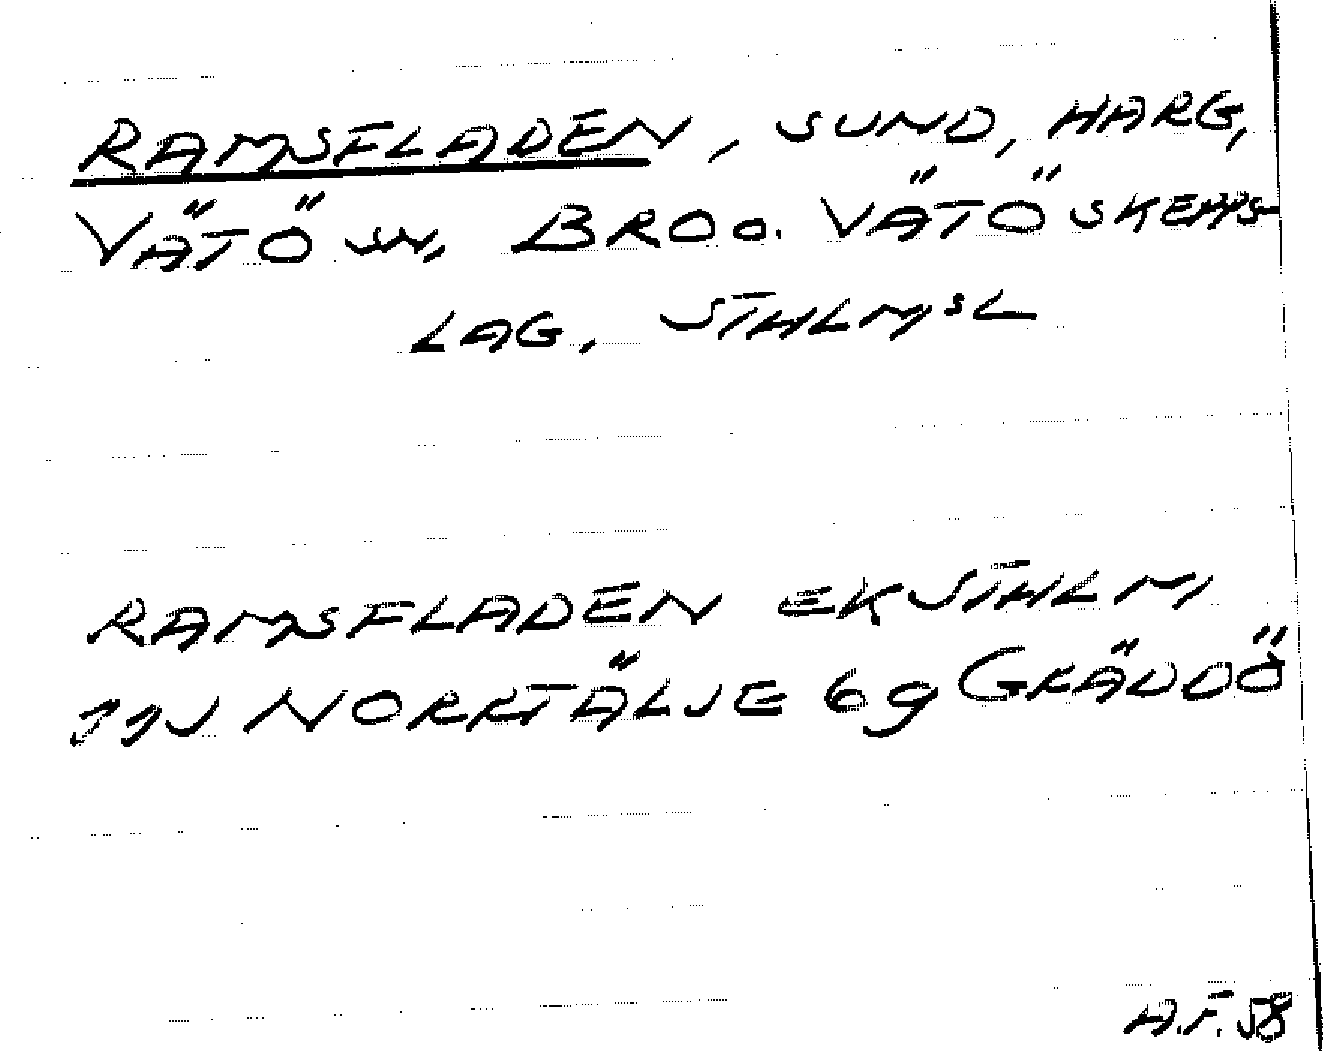 RAMSFLADEN, SUND, HARG,
VÄTÖ SN, BRO o. VÄTÖ SKEPPS-
LAG, STHLMS L
RAMSFLADEN EKSTHLM
11J NORRTÄLJE 6g GRÄDDÖ
A.F. 58